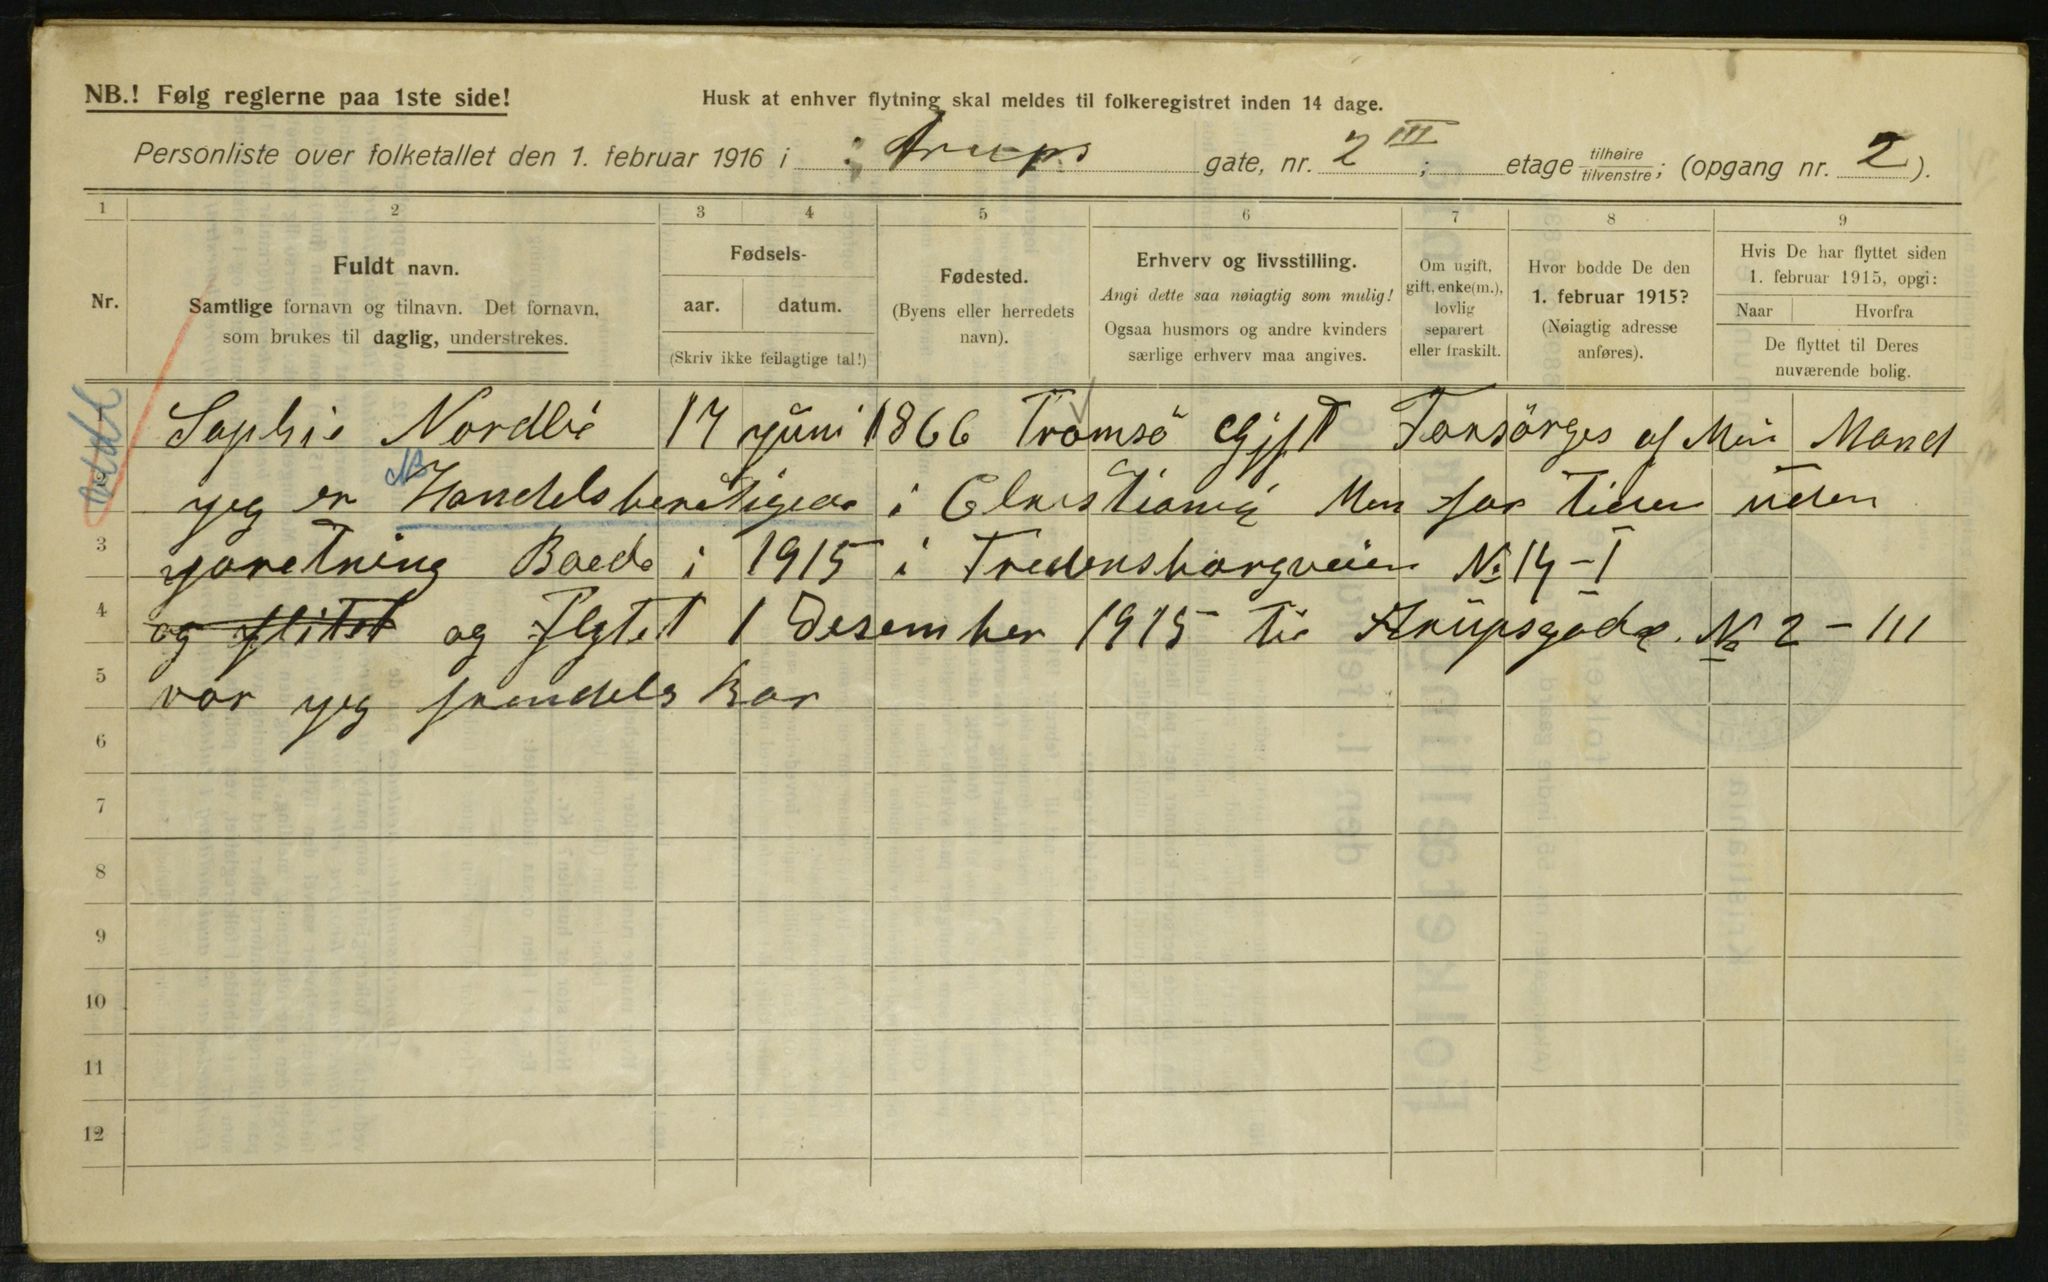 NB.! Følg reglerne paa 1ste side!
Husk at enhver flytning skal meldes til folkeregistret inden 14 dage.
Personliste over folketallet den 1. februar 1916 i Arups gate, nr. 2 III; etage tilhøire tilvenstre; (opgang nr. 2).
1 2 3 4 5 6 7 8 9
Nr.
Fuldt navn.
Samtlige fornavn og tilnavn. Det fornavn,
som brukes til daglig, understrekes.
Fødsels-
aar. datum.
(Skriv ikke feilagtige tal!)
Fødested.
(Byens eller herredets
navn).
Erhverv og livsstilling.
Angi dette saa nøiagtig som mulig!
Ogsaa husmors og andre kvinders
særlige erhverv maa angives.
Om ugift,
gift, enke(m.),
lovlig
separert
eller fraskilt.
Hvor bodde De den
1. februar 1915?
(Nøiagtig adresse
anføres).
Hvis De har flyttet siden
1. februar 1915, opgi:
Naar Hvorfra
De flyttet til Deres
nuværende bolig.
1 Sophie Nordlie 17 juni 1866 Tromsö Gift Forsörges af Min Mand
NB
yeg er Handelsberetigede i Christiania Men for tiden uden
3 yoretning Boede i 1915 i Fredensborgveien No 14-I
4 og flitet og Flytet 1 Desember 1915 til Arupsgade No 2-III
5 vor yeg fremdels Bor
6
7
8
9
10
11
12